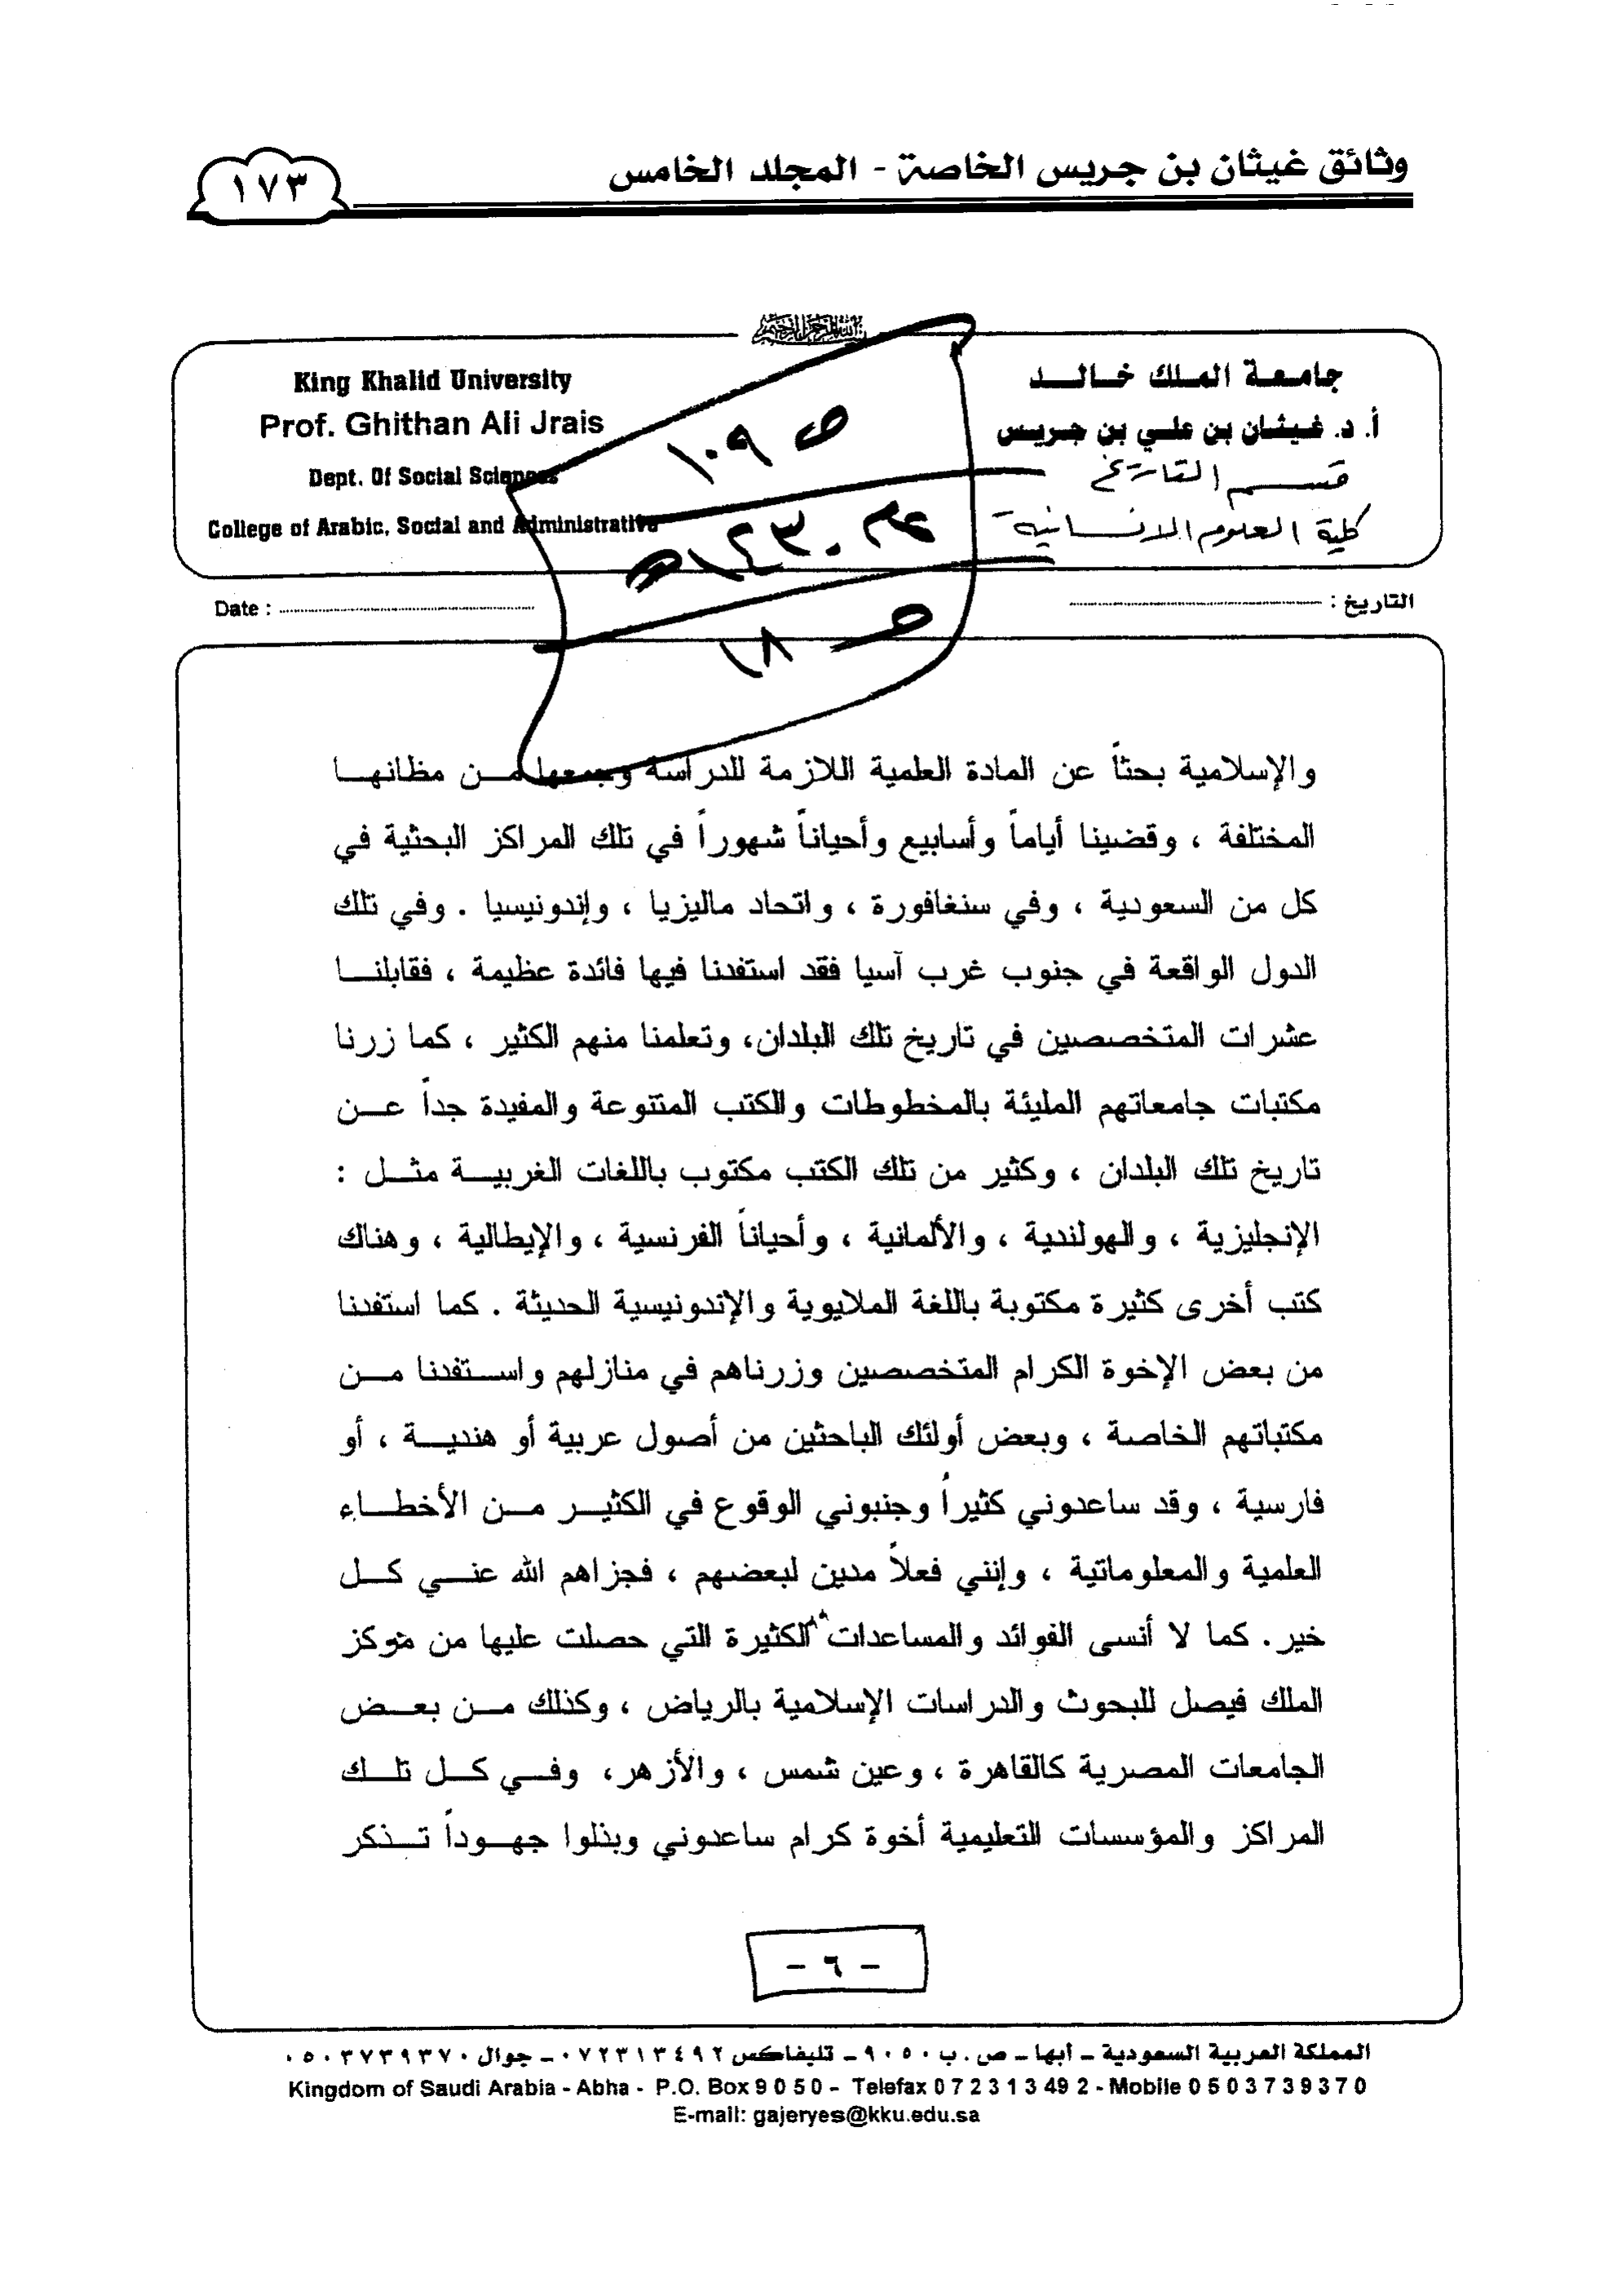 وثائق غيثان بن جريس الخاصة - المجلد الخامس
١٧٣
جامعة الملك خالد
أ. د. غيثان بن علي بن جريس
قسم التاريخ
كلية العلوم الانسانية
King Khalid University
Prof. Ghithan Ali Jrais
Dept. Of Social Sciences
College of Arabic, Social and Administrative
ص ١٠٩
١٤٣٠هـ
ص ١٨
التاريخ :
Date :
والإسلامية بحثاً عن المادة العلمية اللازمة للدراسة وجمعها من مظانها
المختلفة ، وقضينا أياماً وأسابيع وأحياناً شهوراً في تلك المراكز البحثية في
كل من السعودية ، وفي سنغافورة ، واتحاد ماليزيا ، وإندونيسيا . وفي تلك
الدول الواقعة في جنوب غرب آسيا فقد استفدنا فيها فائدة عظيمة ، فقابلنا
عشرات المتخصصين في تاريخ تلك البلدان، وتعلمنا منهم الكثير ، كما زرنا
مكتبات جامعاتهم المليئة بالمخطوطات والكتب المتنوعة والمفيدة جداً عن
تاريخ تلك البلدان ، وكثير من تلك الكتب مكتوب باللغات الغربية مثل :
الإنجليزية ، والهولندية ، والألمانية ، وأحياناً الفرنسية ، والإيطالية ، وهناك
كتب أخرى كثيرة مكتوبة باللغة الملايوية والإندونيسية الحديثة . كما استفدنا
من بعض الإخوة الكرام المتخصصين وزرناهم في منازلهم واستفدنا من
مكتباتهم الخاصة ، وبعض أولئك الباحثين من أصول عربية أو هندية ، أو
فارسية ، وقد ساعدوني كثيراً وجنبوني الوقوع في الكثير من الأخطاء
العلمية والمعلوماتية ، وإنني فعلاً مدين لبعضهم ، فجزاهم الله عني كل
خير. كما لا أنسى الفوائد والمساعدات الكثيرة التي حصلت عليها من مركز
الملك فيصل للبحوث والدراسات الإسلامية بالرياض ، وكذلك من بعض
الجامعات المصرية كالقاهرة ، وعين شمس ، والأزهر، وفي كل تلك
المراكز والمؤسسات التعليمية أخوة كرام ساعدوني وبذلوا جهوداً تذكر
- ٦ -
المملكة العربية السعودية - أبها - ص.ب ٩٠٥٠ - تليفاكس ٠٧٢٣١٣٤٩٢ - جوال ٠٥٠٣٧٣٩٣٧٠
Kingdom of Saudi Arabia - Abha - P.O. Box 9050 - Telefax 072313492 - Mobile 0503739370
E-mail: gajeryes@kku.edu.sa